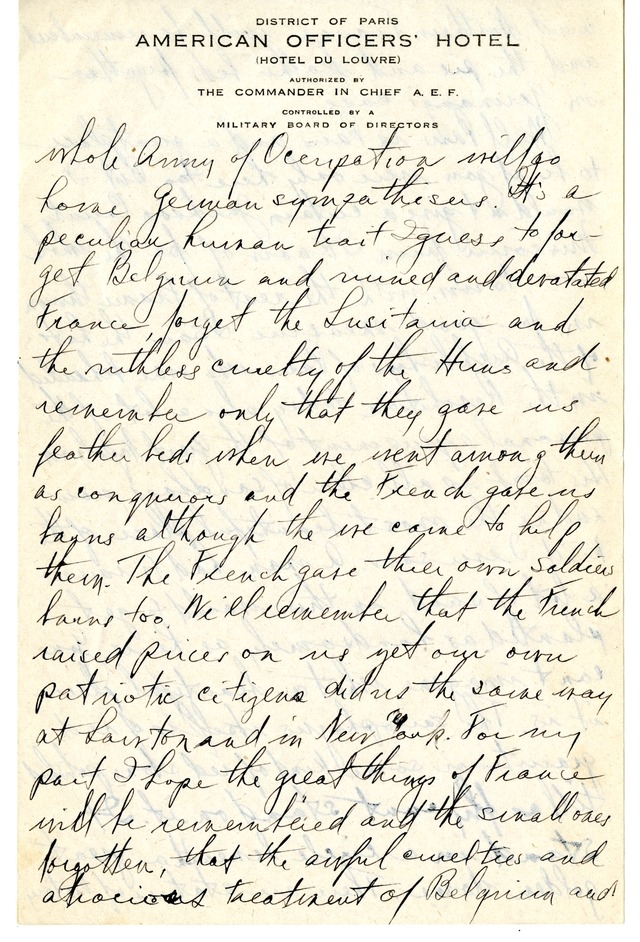 DISTRICT OF PARIS
AMERICAN OFFICERS' HOTEL
(HOTEL DU LOUVRE)
AUTHORIZED BY
THE COMMANDER IN CHIEF A. E. F.
CONTROLLED BY A
MILITARY BOARD OF DIRECTORS
whole Army of Occupation will go
home German sympathesers. It's a
peculiar human trait I guess to for-
get Belgium and ruined and devatated
France, forget the Lusitania and
the ruthless cruelty of the Huns and
remember only that they gave us
feather beds when we went among them
as conquerors and the French gave us
barns although the we came to help
them. The French gave thier own soldiers
barns too. We'll remember that the French
raised prices on us yet our own
patriotic citizens did us the same way
at Lawton and in New York. For my
part I hope the great things of France
will be remembered and the small ones
forgotten, that the awful cruelties and
atrocious treatment of Belgium and